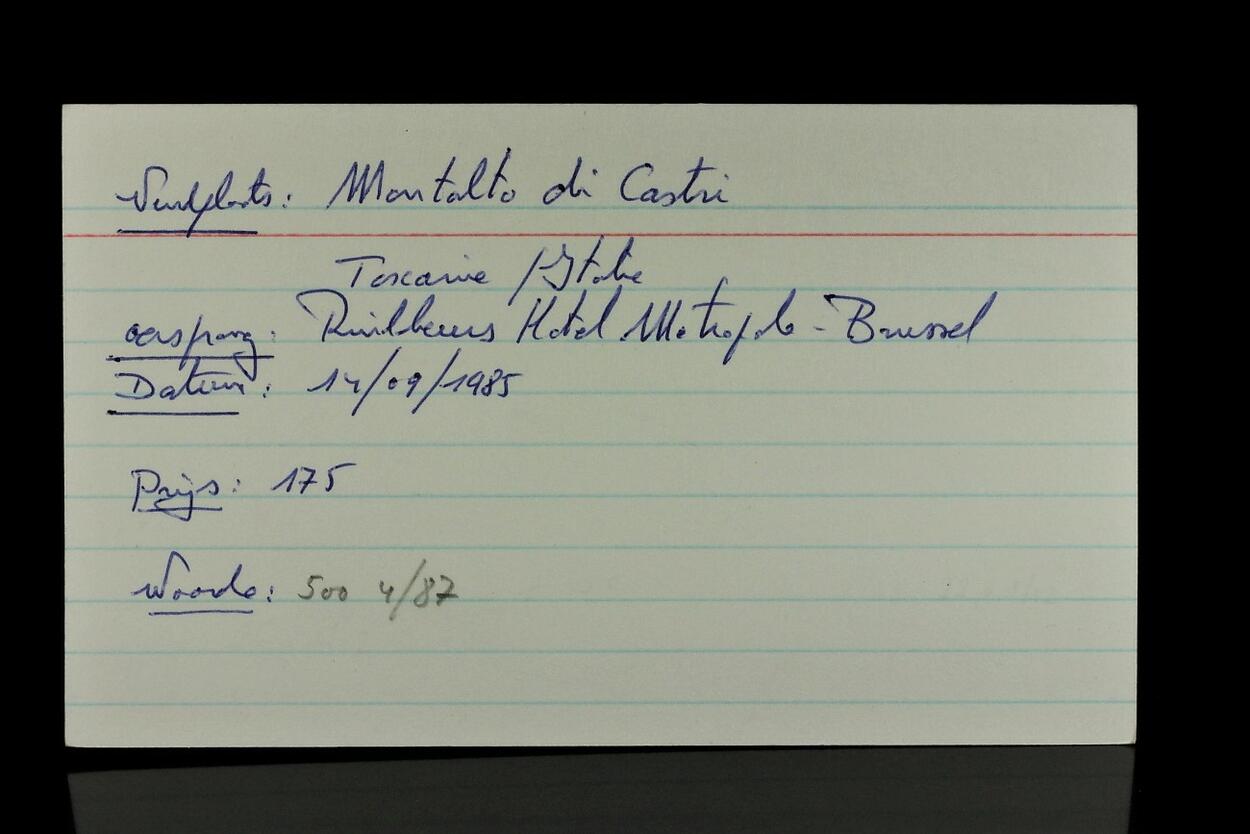 Vindplaats: Montalto di Castri
Toscanie / Italie
oorsprong: Ruilbeurs Hotel Metropole - Brussel
Datum: 14/09/1985
Prijs: 175
Waarde: 500 4/87